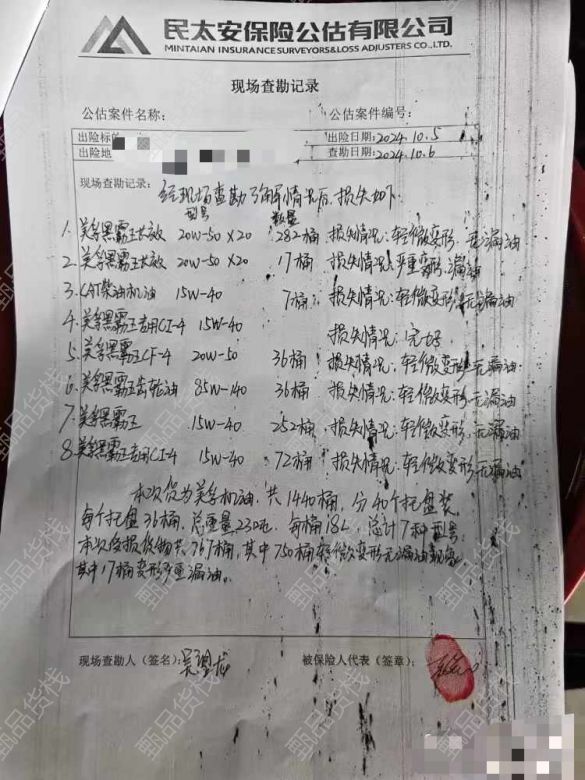 民太安保险公估有限公司
MINTAIAN INSURANCE SURVEYORS&LOSS ADJUSTERS CO.,LTD.
现场查勘记录
公估案件名称: 公估案件编号:
出险标的 出险日期:2024.10.5
出险地 查勘日期:2024.10.6
现场查勘记录:
经现场查勘了解情况后,损失如下
型号 数量
1. 美孚黑霸王长效 20W-50 X20 282桶 损失情况:轻微变形.无漏油
2. 美孚黑霸王长效 20W-50 X20 17桶 损失情况:严重变形.漏油
3. CAT柴油机油 15W-40 7桶 损失情况:轻微变形.无漏油
4. 美孚黑霸王专用CI-4 15W-40 损失情况:完好
5. 美孚黑霸王CF-4 20W-50 36桶 损失情况:轻微变形.无漏油
6. 美孚黑霸王齿轮油 85W-140 36桶 损失情况:轻微变形.无漏油
7. 美孚黑霸王 15W-40 252桶 损失情况:轻微变形.无漏油
8. 美孚黑霸王专用CI-4 15W-40 72桶 损失情况:轻微变形.无漏油
本次货为美孚机油,共1440桶,分40个托盘装
每个托盘36桶,总重量23吨,每桶18L,总计7种型号.
本次受损货物共767桶,其中750桶轻微变形无漏油
其中17桶变形严重漏油。
现场查勘人(签名): 被保险人代表(签章):
甄品货栈